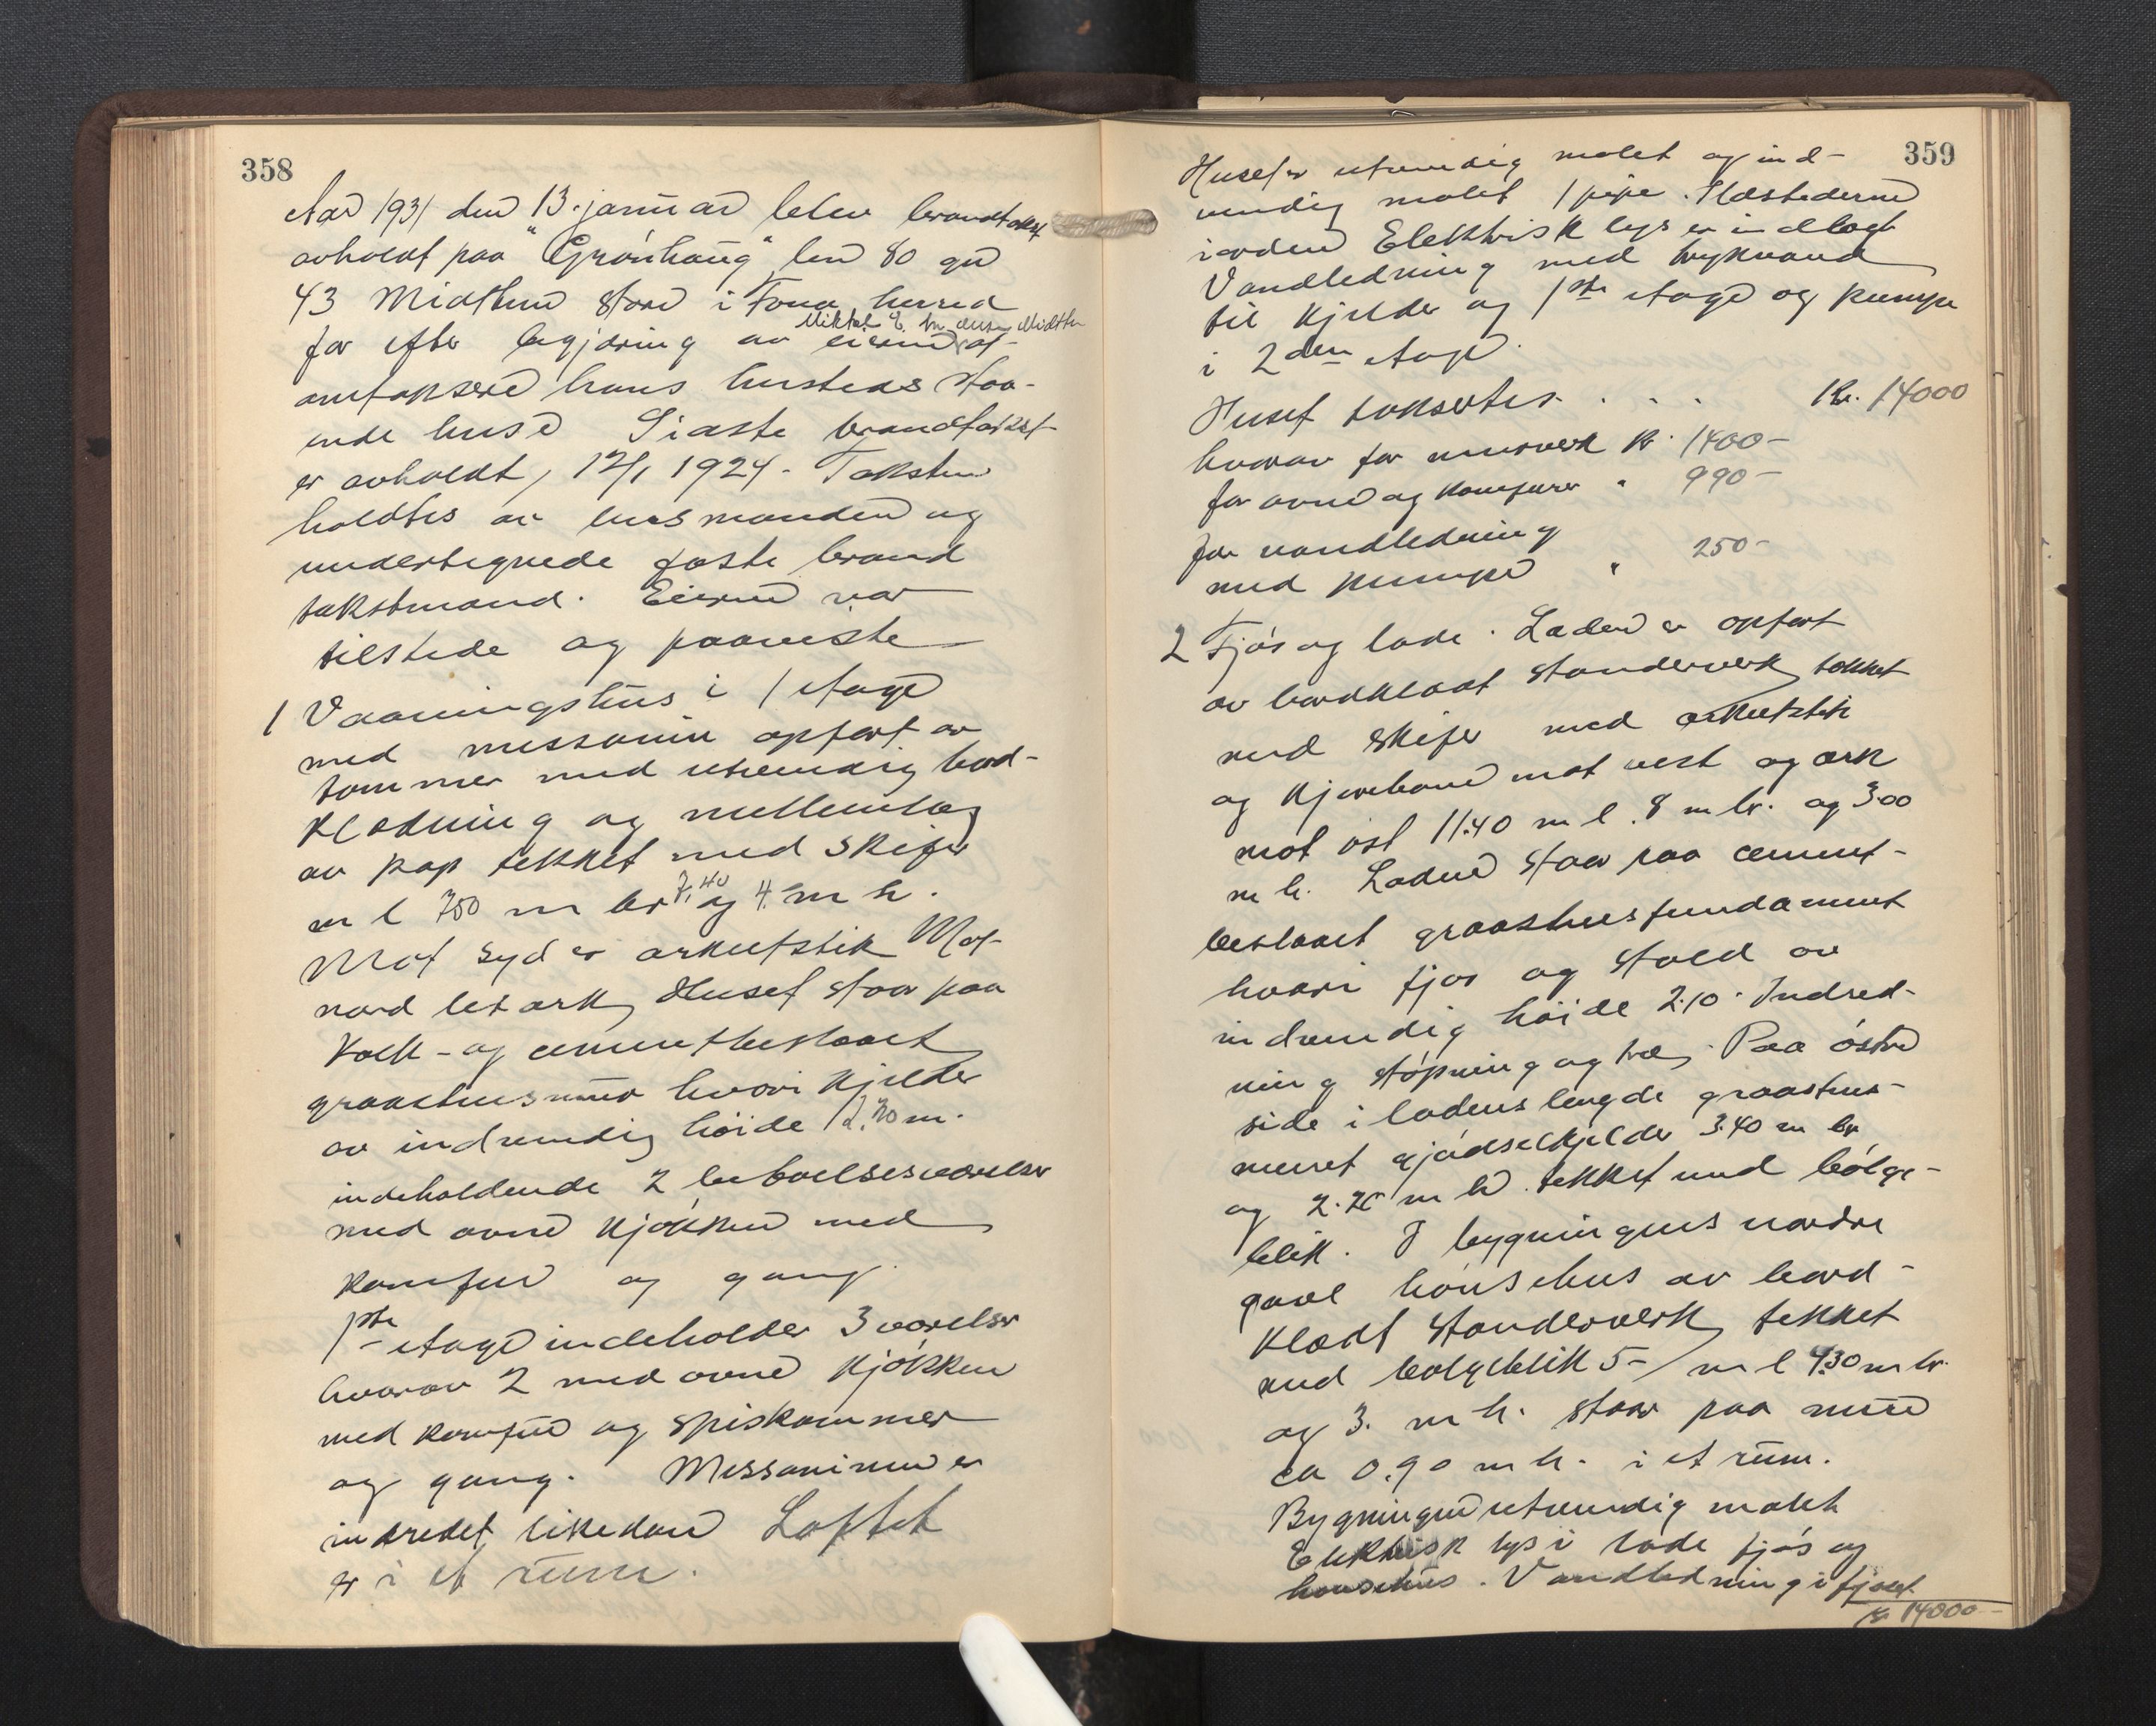 358
Aar 1931 den 13. januar blev brandtakst
avholdt paa "Grønhaug" bnr 80 gnr
43 Midthun store i Fana herred
Mikkel
for efter begjæring av eieren at
omtaksere hans husteds staa-
ende huse Siaste brandtakst
er avholdt, 12/1 1924. Taksten
holdtes av lensmanden og
undertegnede faste brand
takstmænd. Eieren var
tilstede og paaviste
1 Vaaningshus i 1 etage
med messanin opført av
tømmer med utvendig bord-
klædning og mellemlag
av pap tekket med skifer
m l 750 m br 7.40 og 4. m h.
Mot syd er arkutstik Mot
nord let ark, Huset staar paa
kalk- og cementbeslaaet
graastensmur hvori kjelder
av indvendig høide 2.20 m.
indeholdende 2 beboelsesværelser
med ovne kjøkken med
komfur og gang.
1ste etage indeholder 3 værelser
hvorav 2 med ovne kjøkken
med komfur og spiskammer
og gang. Messaninen er
indredet likedan Loftet
er i et rum.
359
Huset er utvendig malet og ind-
vendig malet 1 pipe. Ildstederne
i orden Elektrisk lys er indlagt
Vandledning med trykvand
til kjelder og 1ste etage og pumpe
i 2den etage.
Huset takseres . . . Kr. 14000
hvorav for murverk kr. 1400-
for ovne og komfurer " 990-
for vandledning
med pumpe " 250-
2 Fjøs og lade. Laden er opført
av bordklædt standerverk, tekket
med skifer med arkutstik
og kjørebane mot vest og ark
mot øst 11.40 m l. 8 m br. og 3.00
m h. Laden staar paa cement-
beslaaet graastensfundament
hvori fjøs og stald av
indvendig høide 2.10. Indred-
ning støpning og træ, Paa østre
side i ladens lengde graastens-
muret gjødselkjelder 3.40 m br
og 2.20 m h. tekket med bølge-
blik. I bygningens nordre
gavl hønsehus av bord-
klædt standerverk, tekket
med bølgeblik 5- m l 4.30 m br.
og 3. m h. staar paa mur
ca 0.90 m h. i et rum.
Bygningen utvendig malet
Elektrisk lys i lade fjøs og
hønsehus. Vandledning i fjøset
kr 14000-